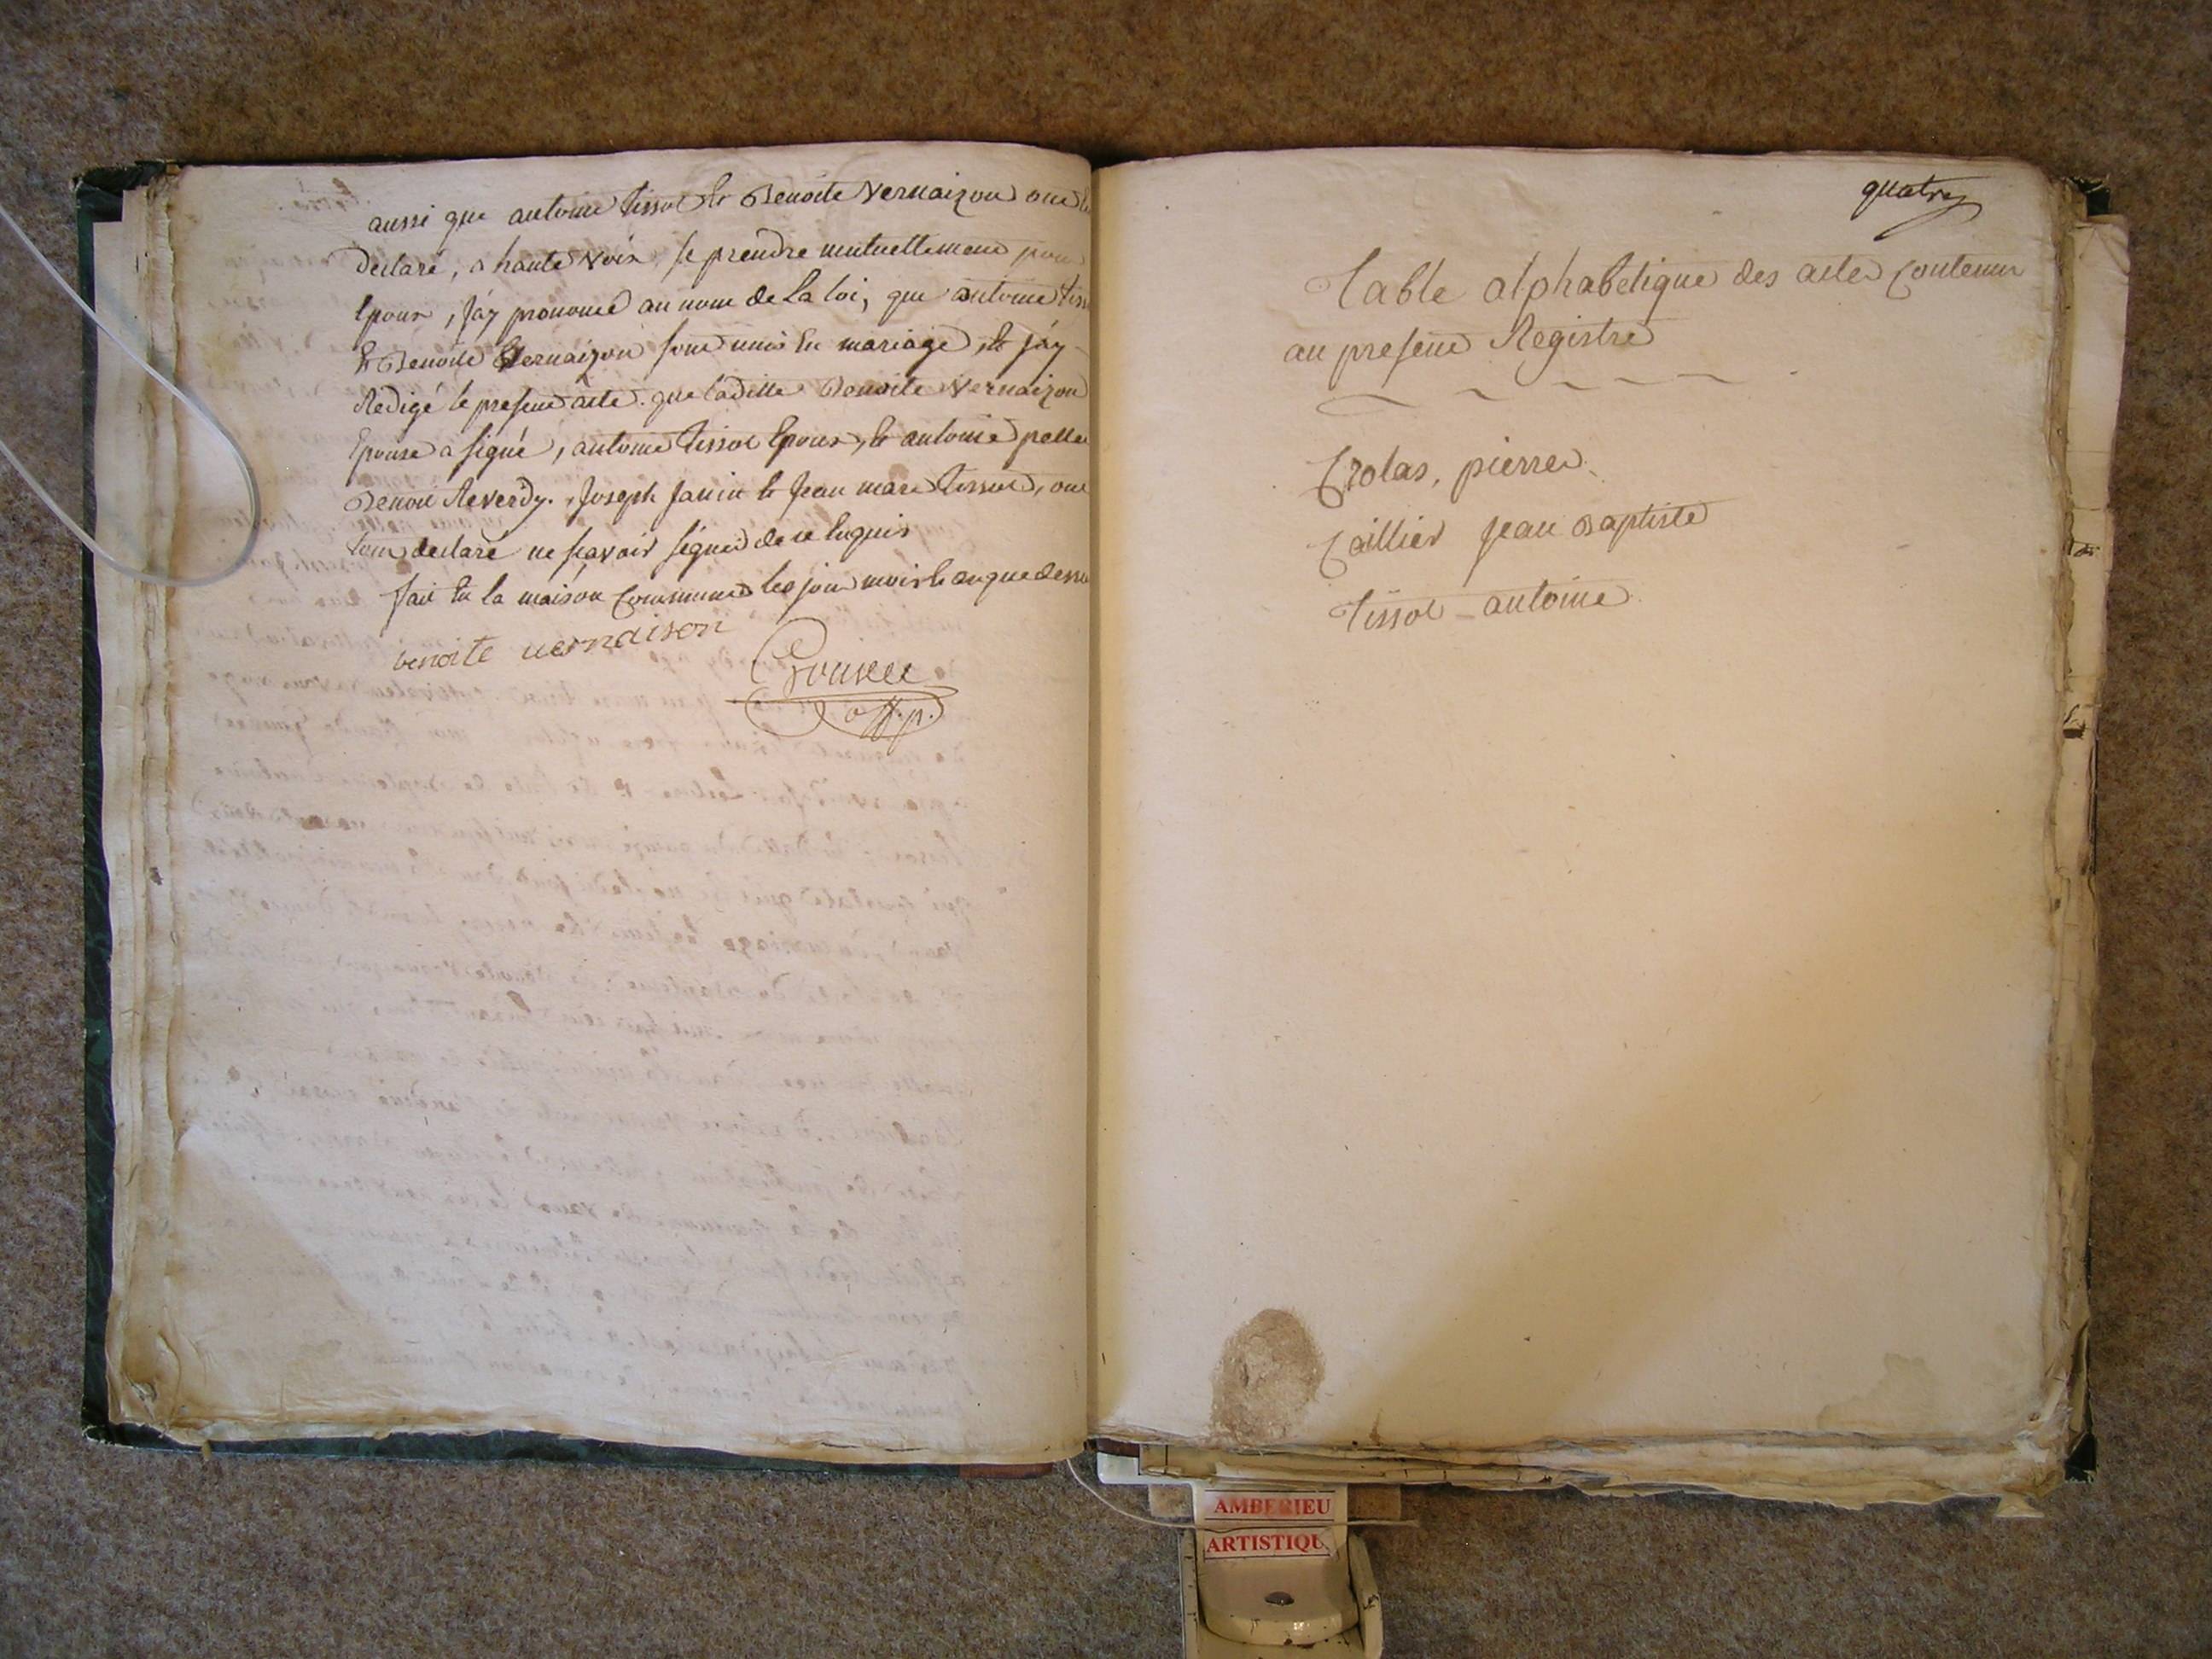 aussi que antoine tissot et Benoite Vernaizon ont
declaré, a haute voix, se prendre mutuellement pour
Epoux, J'ay prononcé au nom de la loi, que antoine tiss
et Benoite Vernaizon sont unis En mariage, et j'ay
Redigé le present acte. que laditte Benoite Vernaizon
Epouse a signé, antoine tissot Epoux, et antoine pelle
Benoit Reverdy. Joseph Janin et Jean marie tissot, ont
tous declaré ne sçavoir signer de ce Enquis
fait En la maison Commune les jour mois et an que dessu
benoite vernaison
off. p.
quatre
Table alphabetique des actes Contenus
au present Registre
Crolas, pierre
Taillier Jean Baptiste
Tissot - antoine
AMBERIEU
ARTISTIQU